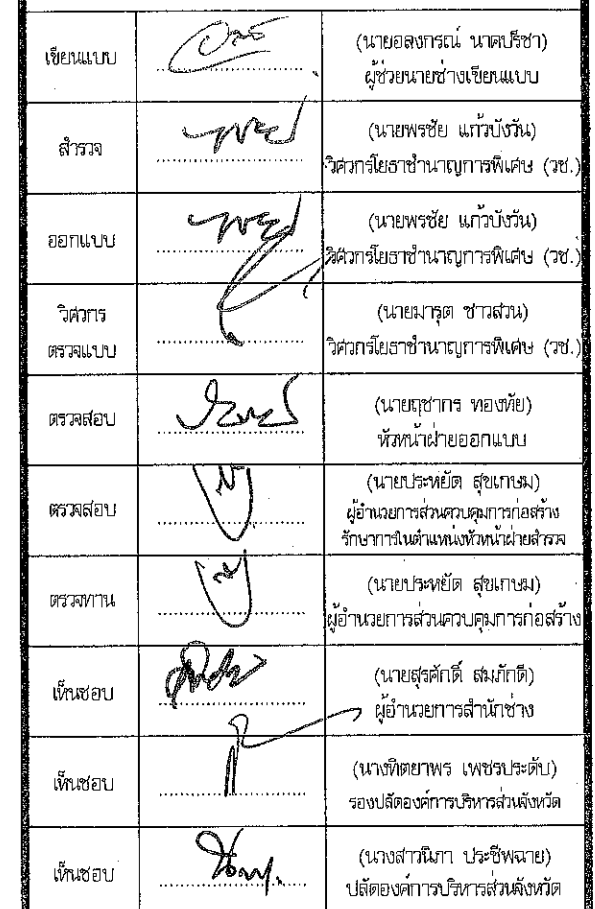 เขียนแบบ
(นายอลงกรณ์ นาคปรีชา)
ผู้ช่วยนายช่างเขียนแบบ
สำรวจ
(นายพรชัย แก้วบังวัน)
วิศวกรโยธาชำนาญการพิเศษ (วช.)
ออกแบบ
(นายพรชัย แก้วบังวัน)
วิศวกรโยธาชำนาญการพิเศษ (วช.)
วิศวกร
ตรวจแบบ
(นายมารุต ชาวสวน)
วิศวกรโยธาชำนาญการพิเศษ (วช.)
ตรวจสอบ
(นายฤชากร ทองทัย)
หัวหน้าฝ่ายออกแบบ
ตรวจสอบ
(นายประหยัด สุขเกษม)
ผู้อำนวยการส่วนควบคุมการก่อสร้าง
รักษาการในตำแหน่งหัวหน้าฝ่ายสำรวจ
ตรวจทาน
(นายประหยัด สุขเกษม)
ผู้อำนวยการส่วนควบคุมการก่อสร้าง
เห็นชอบ
(นายสุรศักดิ์ สมภักดี)
ผู้อำนวยการสำนักช่าง
เห็นชอบ
(นางทิตยาพร เพชรประดับ)
รองปลัดองค์การบริหารส่วนจังหวัด
เห็นชอบ
(นางสาวนิภา ประชีพฉาย)
ปลัดองค์การบริหารส่วนจังหวัด